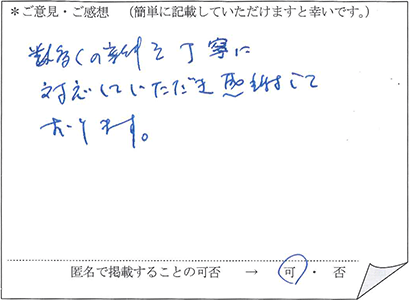 ＊ご意見・ご感想　（簡単に記載していただけますと幸いです。）
数多くの案件を丁寧に
対応していただき感謝して
おります。
匿名で掲載することの可否　→　可・否